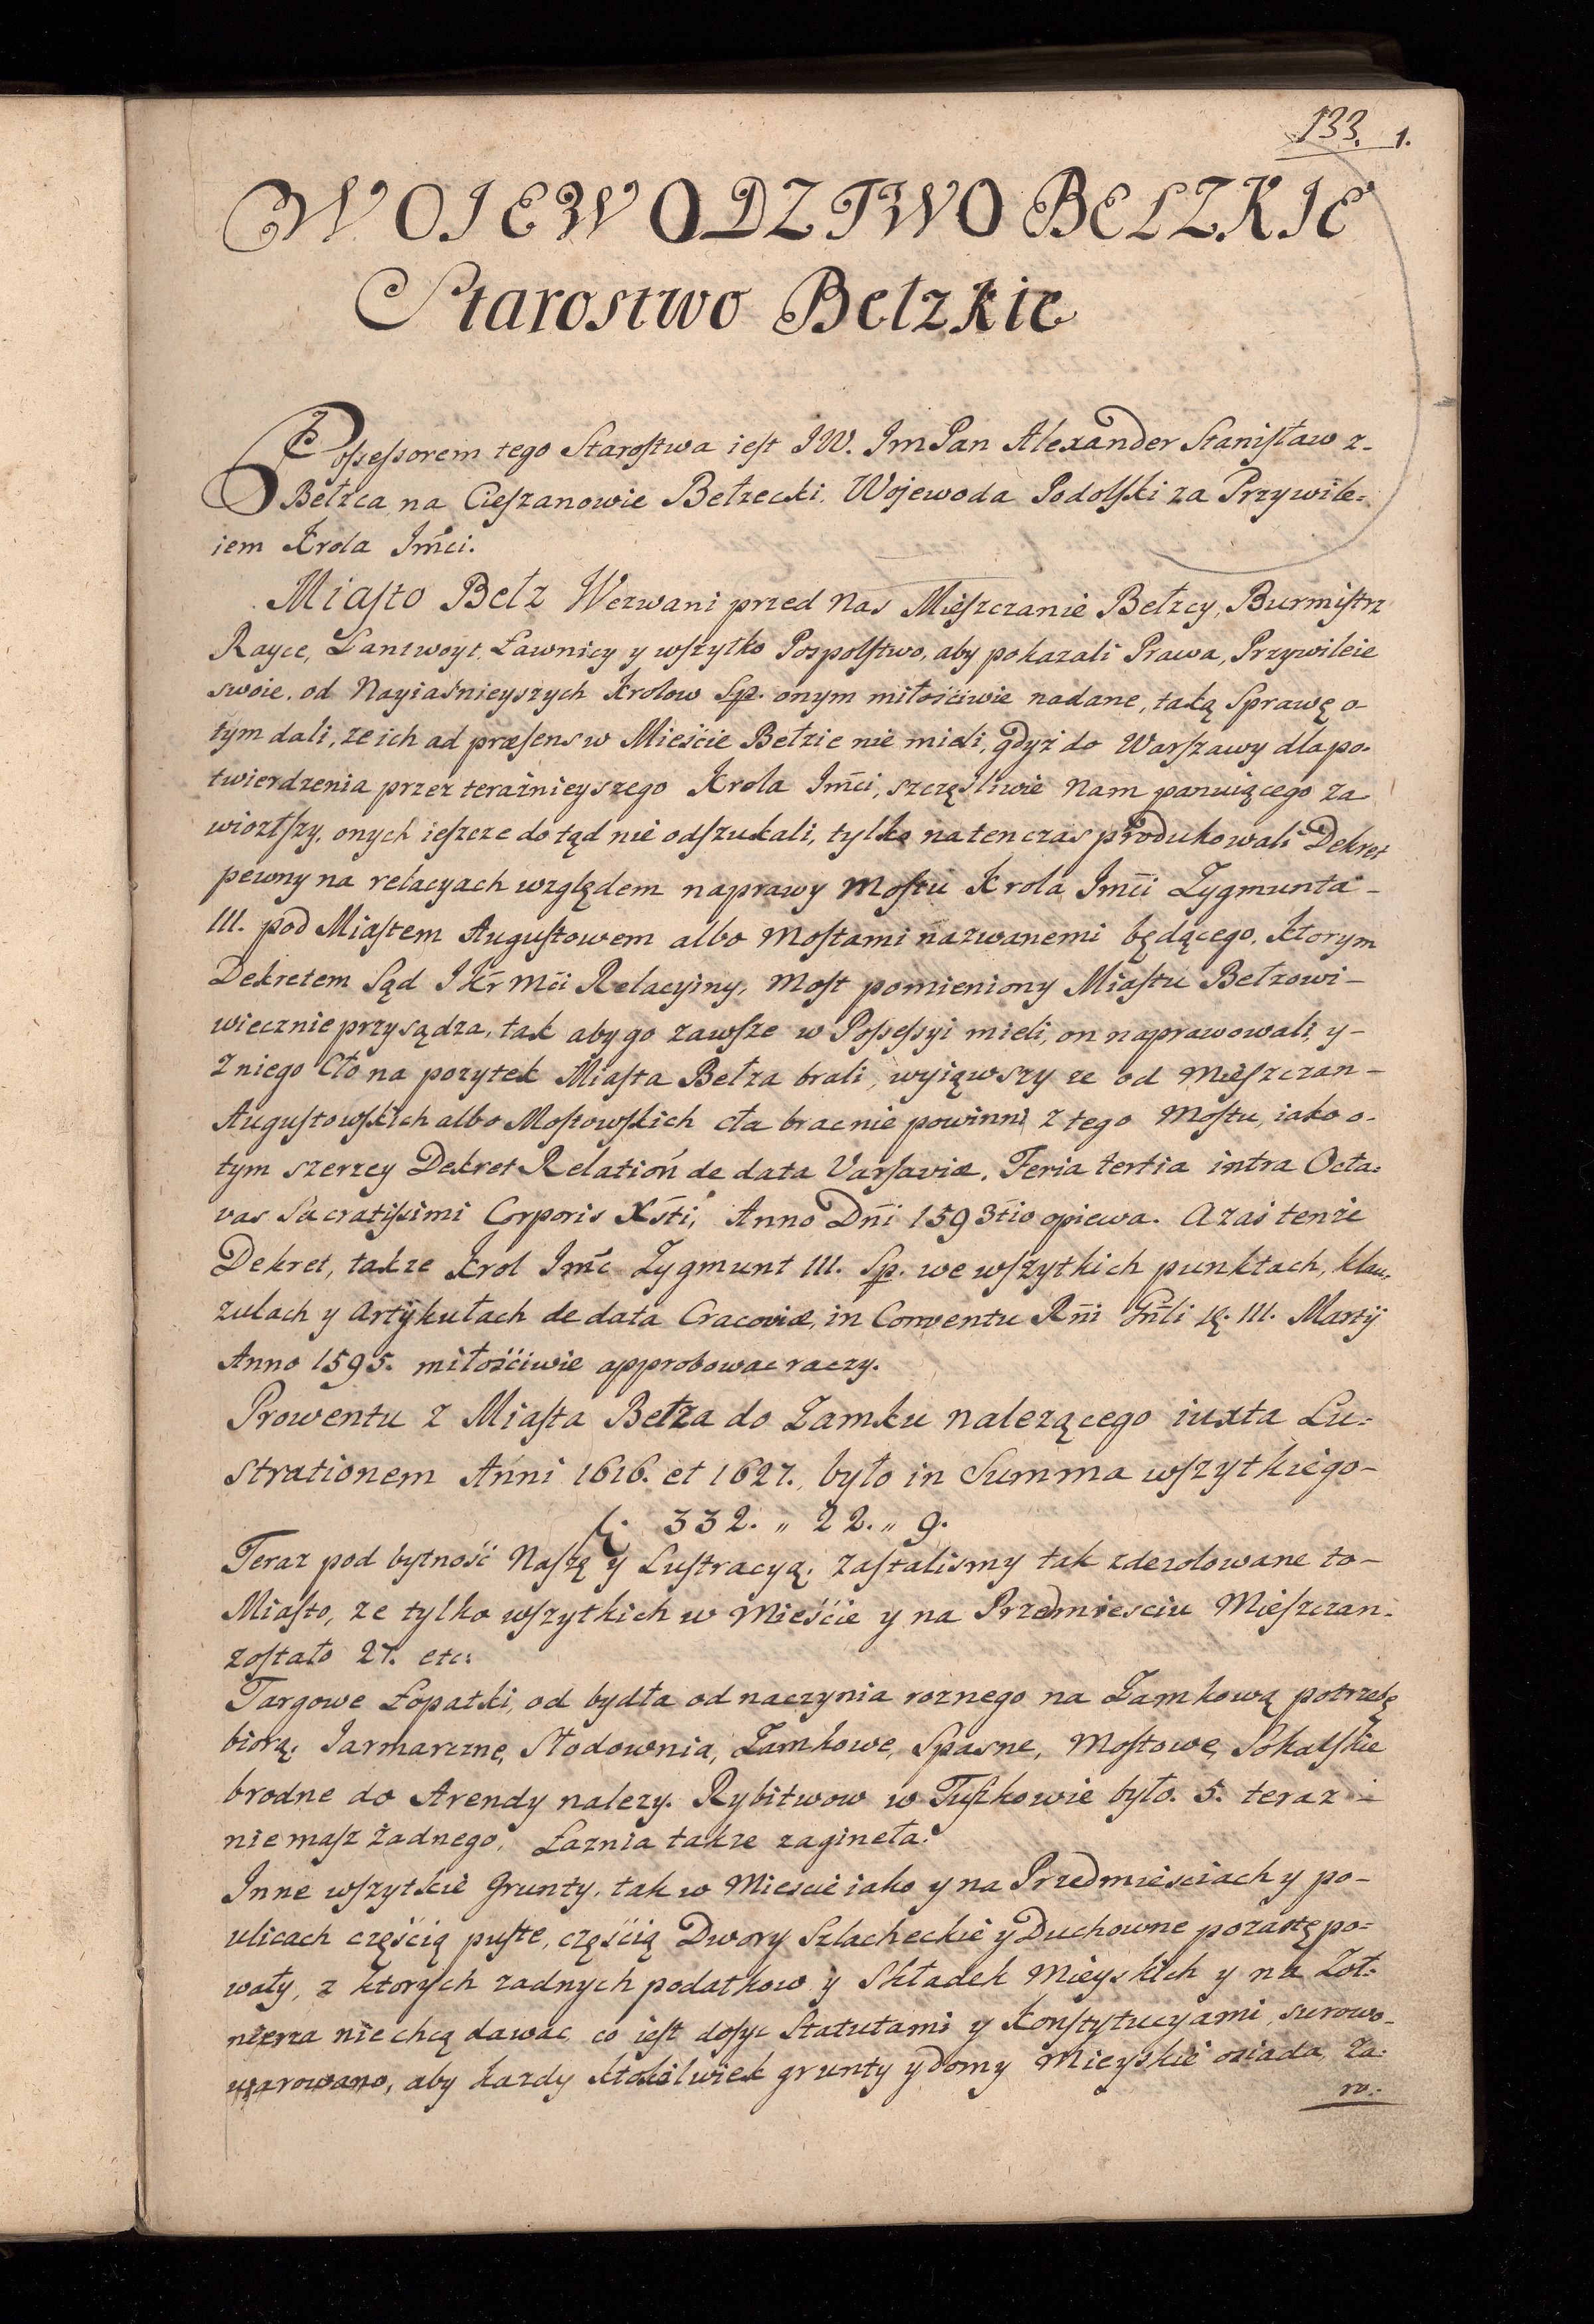 133. 1.
WOIEWODZTWO BEŁZKIE
Starostwo Bełzkie
Possessorem tego Starostwa iest JW. Im Pan Alexander Stanisław z-
Bełzca na Cieszanowie Bełzecki, Wojewoda Podolski za Przywile-
iem Krola Jmci.
Miasto Bełz Wezwani przed Nas Mieszczanie Bełzcy, Burmistrz
Rayce, Lantwoyt, Ławnicy y wszytko Pospolstwo, aby pokazali Prawa, Przywileie
swoie, od Nayiasnieyszych Krolow Sp. onym miłościwie nadane, taką Sprawę o-
tym dali, ze ich ad præsens w Mieście Bełzie nie mieli, gdyż do Warszawy dla po-
twierdzenia przez teraźnieyszego Krola Jmci, szczęśliwie Nam panuiącego za
wiozłszy, onych ieszcze do tąd nie odszukali, tylko na ten czas produkowali Dekret
pewny na relacyach względem naprawy Mostu Krola Jmci Zygmunta-
III. pod Miastem Augustowem albo Mostami nazwanemi będącego, Ktorym
Dekretem Sąd J Kr Mci Relacyiny, Most pomieniony Miastu Bełzowi-
wiecznie przysądza, tak aby go zawsze w Possessyi mieli, on naprawowali, y-
Z niego Cło na pozytek Miasta Bełza brali, wyiąwszy ze od Mieszczan-
Augustowskich albo Mostowskich cła brac nie powinni z tego Mostu, iako o-
tym szerzey Dekret Relation de data Varsaviæ, Feria tertia intra Octa-
vas Sacratissimi Corporis Xsti, Anno Dni 1593tio opiewa. A zaś tenże
Dekret, takze Krol Jmc Zygmunt III. Sp. we wszytkich punktach, klau-
zulach y Artykułach de data Cracoviæ, in Conventu Rni Gnli III. Martij
Anno 1595. miłościwie approbowac raczy.
Prowentu z Miasta Bełza do Zamku nalezącego iuxta Lu-
strationem Anni 1616. et 1627. było in Summa wszytkiego-
f. 332. „ 22. „ 9.
Teraz pod bytność Naszą y Lustracyą, zastalismy tak zdezolowane to-
Miasto, ze tylko wszytkich w Mieście y na Przedmiesciu Mieszczan-
zostało 27. etc:
Targowe Łopatki, od bydła od naczynia roznego na Zamkową potrzebę
biorą. Jarmarczne, Słodownia, Zamkowe, Spasne, Mostowe, Sokalskie
brodne do Arendy nalezy. Rybitwow w Tuszkowie było. 5. teraz-
nie masz żadnego, Łaznia takze zagineła.
Inne wszytkie Grunty, tak w Miescie iako y na Przedmieściach y po-
ulicach częścią puste, częścią Dwory Szlacheckie y Duchowne pozastępo-
wały, z ktorych zadnych podatkow y Składek Mieyskich y na Zoł-
nierza nie chcą dawac, co iest dosyc Statutami y Konstytucyami, surowo-
warowano, aby kazdy ktokolwiek grunty y domy Mieyskie osiada, Za-
ro: